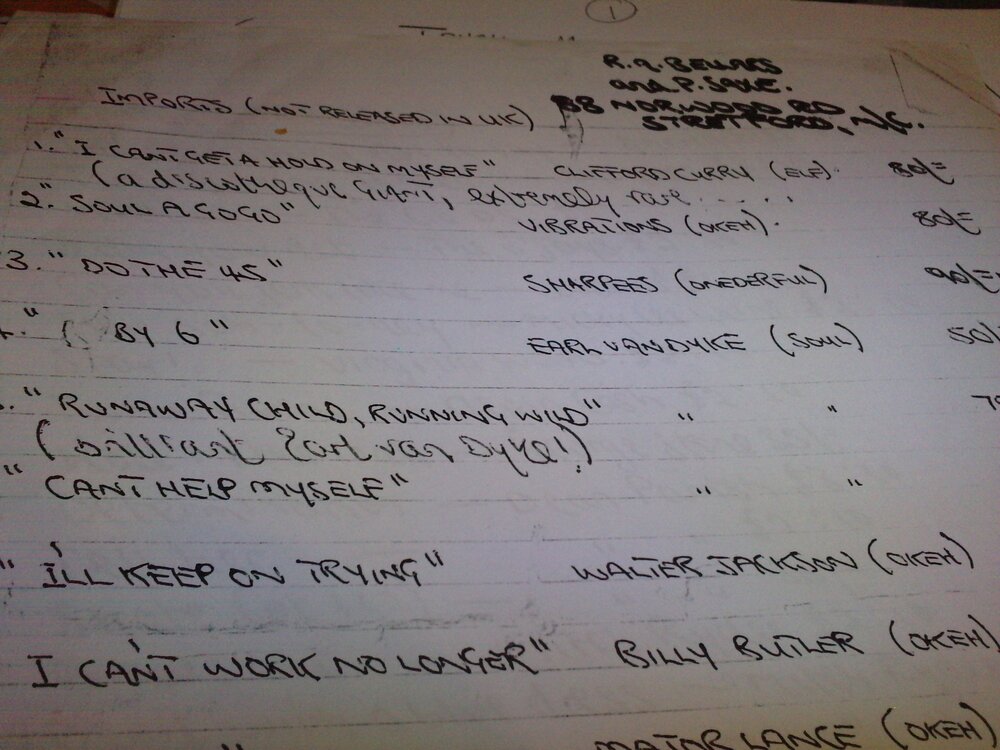 1
R.A. BELLARS
and P. SAXE.
IMPORTS (NOT RELEASED IN UK) 38 NORWOOD RD
STRETFORD, M/C.
1. "I CANT GET A HOLD ON MYSELF" CLIFFORD CURRY (ELF). 80/=
(a discotheque GIANT, extremely rare.....
2. "SOUL A GO GO" VIBRATIONS (OKEH). 80/=
3. "DO THE 45" SHARPEES (ONEDERFUL) 90/=
" BY 6" EARL VAN DYKE (SOUL) 50/
"RUNAWAY CHILD, RUNNING WILD" " "
(brilliant Earl van Dyke!)
"CAN'T HELP MYSELF" " "
"I'LL KEEP ON TRYING" WALTER JACKSON (OKEH)
I CAN'T WORK NO LONGER" BILLY BUTLER (OKEH)
" MAJOR LANCE (OKEH)